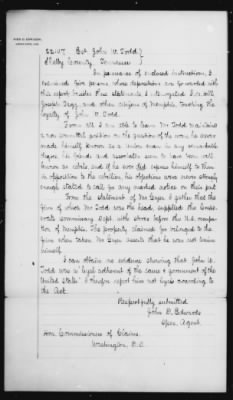 JOHN D. EDWARDS,
52107 Est. John W. Todd }
Shelby County, Tennessee }
In pursuance of enclosed instructions, I
examined five persons whose depositions are forwarded with
this report. Besides these statements I interrogated
Joseph and other citizens of Memphis, touching the
loyalty of John W. Todd.
From all I am able to learn Mr Todd maintained
a non committal position on the question of the war, he never
made himself known as a Union man in any remarkable
degree, his friends and associates seem to have been well
known as rebels and if he ever did express himself to them
in opposition to the rebellion, his objections were never strongly
enough stated to call for any marked notice on their part
From the statement of Mr Cryer I gather that the
firm of which Mr Todd was the head supplied the Confed-
erate Commissary Dept. with stores before the U.S. occupa-
tion of Memphis. The property claimed for belonged to the
firm when taken Mr Cryer asserts that he was not Union
himself.
I can obtain no evidence showing that John W.
Todd was a "loyal adherent of the cause & government of the
United States". I therefore report him not loyal according to
the Act.
Respectfully submitted
John D. Edwards
Spec. Agent.
Hon. Commissioners of Claims.
Washington, D.C.